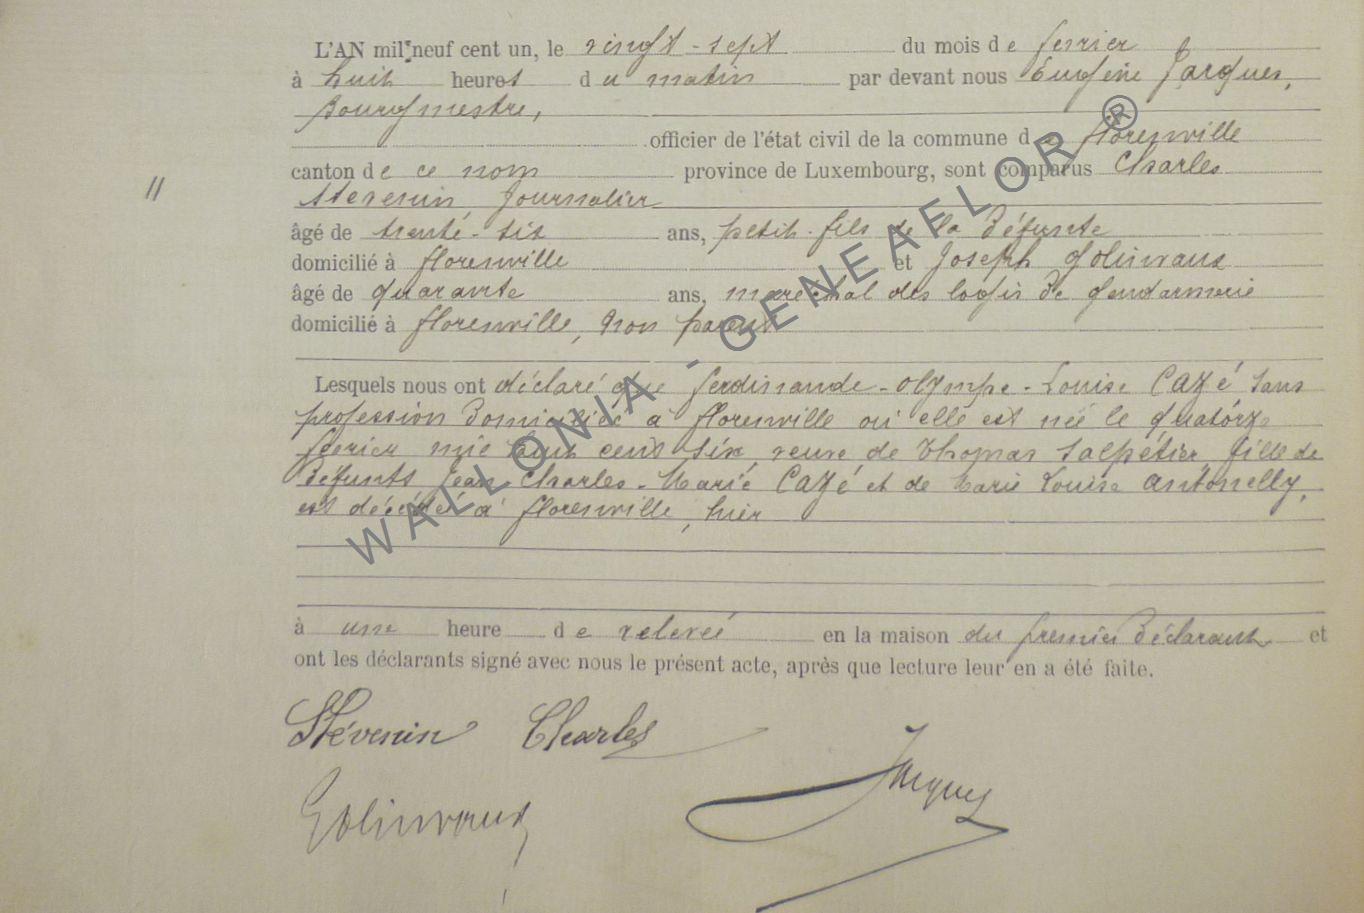 L'AN mil neuf cent un, le vingt-sept du mois de fevrier
à huit heures du matin par devant nous Eugène Jacques,
Bourgmestre,
officier de l'état civil de la commune de florenville
canton de ce nom province de Luxembourg, sont comparus Charles
Stevenin Journalier
âgé de trente-six ans, petit-fils de la défunte
domicilié à florenville et Joseph Golinvaux
âgé de quarante ans, maréchal des logis de gendarmerie
domicilié à florenville, non parent
Lesquels nous ont déclaré que ferdinande-olympe-Louise CAZé sans
profession domiciliée à florenville où elle est née le quatorze
fevrier mil huit cent six, veuve de Thomas Salpétier, fille de
défunts Jean Charles-Marie CAZé et de Marie Louise antonelly,
est décédée à florenville, hier
à une heure de relevée en la maison du premier déclarant et
ont les déclarants signé avec nous le présent acte, après que lecture leur en a été faite.
Stévenin Charles
Jacques
Golinvaux
WALLONIA - GENEAFLOR ®